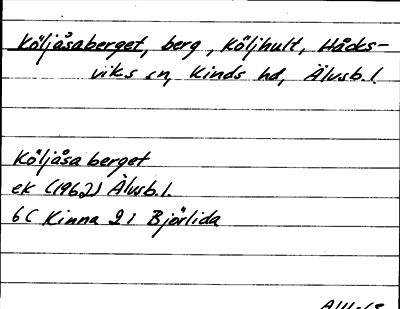 Köljåsaberget, berg, Köljhult, Håcks-
viks sn, Kinds hd, Älvsb. l.
Köljåsaberget
ek (1962) Älvsb. l.
6C Kinna 2 i Björlida